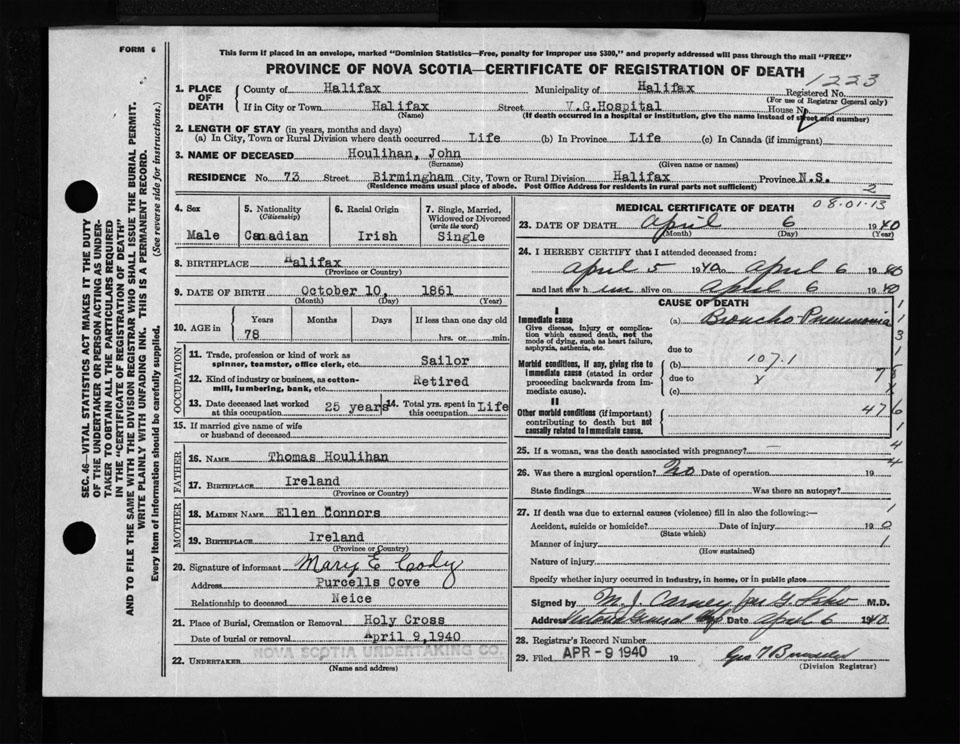 FORM 6
This form if placed in an envelope, marked "Dominion Statistics—Free, penalty for improper use $300," and properly addressed will pass through the mail "FREE"
PROVINCE OF NOVA SCOTIA—CERTIFICATE OF REGISTRATION OF DEATH
1223
1. PLACE OF DEATH
County of Halifax Municipality of Halifax Registered No.
(For use of Registrar General only)
If in City or Town Halifax Street V.G.Hospital House No.
(Name) (If death occurred in a hospital or institution, give the name instead of street and number)
2. LENGTH OF STAY (in years, months and days)
(a) In City, Town or Rural Division where death occurred Life (b) In Province Life (c) In Canada (if immigrant)
3. NAME OF DECEASED Houlihan, John
(Surname) (Given name or names)
RESIDENCE No. 73 Street Birmingham City, Town or Rural Division Halifax Province N.S.
(Residence means usual place of abode. Post Office Address for residents in rural parts not sufficient)
2
4. Sex
Male
5. Nationality
(Citizenship)
Canadian
6. Racial Origin
Irish
7. Single, Married, Widowed or Divorced
(write the word)
Single
8. BIRTHPLACE Halifax
(Province or County)
9. DATE OF BIRTH October 10, 1861
(Month) (Day) (Year)
10. AGE in
Years Months Days If less than one day old
78 hrs. or min.
OCCUPATION
11. Trade, profession or kind of work as
spinner, teamster, office clerk, etc. Sailor
12. Kind of industry or business, as cotton-
mill, lumbering, bank, etc. Retired
13. Date deceased last worked
at this occupation 25 years
14. Total yrs. spent in
this occupation Life
15. If married give name of wife
or husband of deceased
FATHER
16. NAME Thomas Houlihan
17. BIRTHPLACE Ireland
(Province or Country)
MOTHER
18. MAIDEN NAME Ellen Connors
19. BIRTHPLACE Ireland
(Province or Country)
20. Signature of informant Mary E Cody
Address Purcells Cove
Relationship to deceased Neice
21. Place of Burial, Cremation or Removal Holy Cross
Date of burial or removal April 9,1940
22. UNDERTAKER NOVA SCOTIA UNDERTAKING CO.
(Name and address)
MEDICAL CERTIFICATE OF DEATH 08.01.13
23. DATE OF DEATH April 6 1940
(Month) (Day) (Year)
24. I HEREBY CERTIFY that I attended deceased from:
April 5 1940 to April 6 1940
and last saw him alive on April 6 1940
CAUSE OF DEATH
I
Immediate cause
Give disease, injury or complica-
tion which caused death, not the
mode of dying, such as heart failure,
asphyxia, asthenia, etc.
(a) Broncho Pneumonia
due to
107.1
Morbid conditions, if any, giving rise to
immediate cause (stated in order
proceeding backwards from im-
mediate cause).
(b)
due to x
(c)
II
Other morbid conditions (if important)
contributing to death but not
causally related to immediate cause.
47
25. If a woman, was the death associated with pregnancy? —
26. Was there a surgical operation? no Date of operation 19
State findings Was there an autopsy?
27. If death was due to external causes (violence) fill in also the following:—
Accident, suicide or homicide? Date of injury 19
(State which)
Manner of injury
(How sustained)
Nature of injury
Specify whether injury occurred in industry, in home, or in public place
Signed by M. J. Carney per M.D.
Address Victoria General Date April 6 1940
28. Registrar's Record Number
29. Filed APR - 9 1940 19
(Division Registrar)
SEC. 46—VITAL STATISTICS ACT MAKES IT THE DUTY
OF THE UNDERTAKER OR PERSON ACTING AS UNDER-
TAKER TO OBTAIN ALL THE PARTICULARS REQUIRED
IN THE "CERTIFICATE OF REGISTRATION OF DEATH"
AND TO FILE THE SAME WITH THE DIVISION REGISTRAR WHO SHALL ISSUE THE BURIAL PERMIT.
WRITE PLAINLY WITH UNFADING INK. THIS IS A PERMANENT RECORD.
Every item of Information should be carefully supplied. (See reverse side for instructions.)